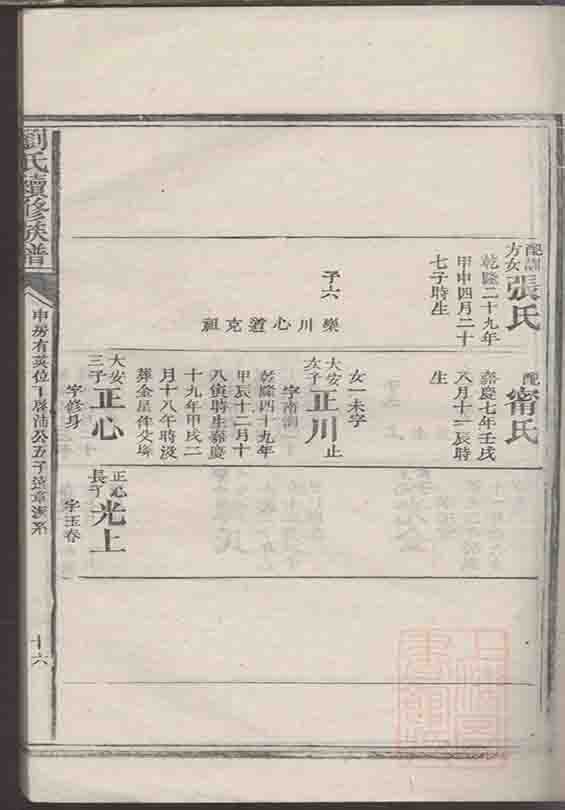 劉氏續修族譜
申房有英位下
十六
配
方女
張氏
乾隆二十九年
甲申四月二十
七子時生
子六
樂川心道克祖
配
甯氏
嘉慶七年壬戌
八月十一辰時
生
女一未字
大安
次子
正川止
字南澗
乾隆四十九年
甲辰十二月十
八寅時生嘉慶
十九年甲戌二
月十八午時沒
葬金星
大安
三子
正心
字修身
正心
長子
光上
字玉春